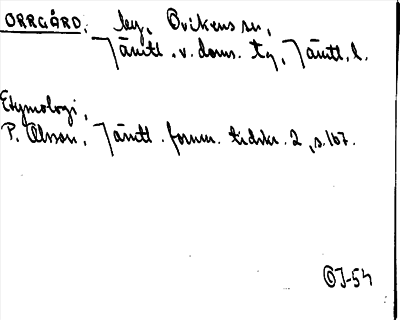 ORRGÅRD, by, Ovikens sn,
Jämtl. v. doms. tg, Jämtl. l.
Etymologi,
P. Olsson, Jämtl. fornm. tidskr. 2, s. 167.
OJ-54